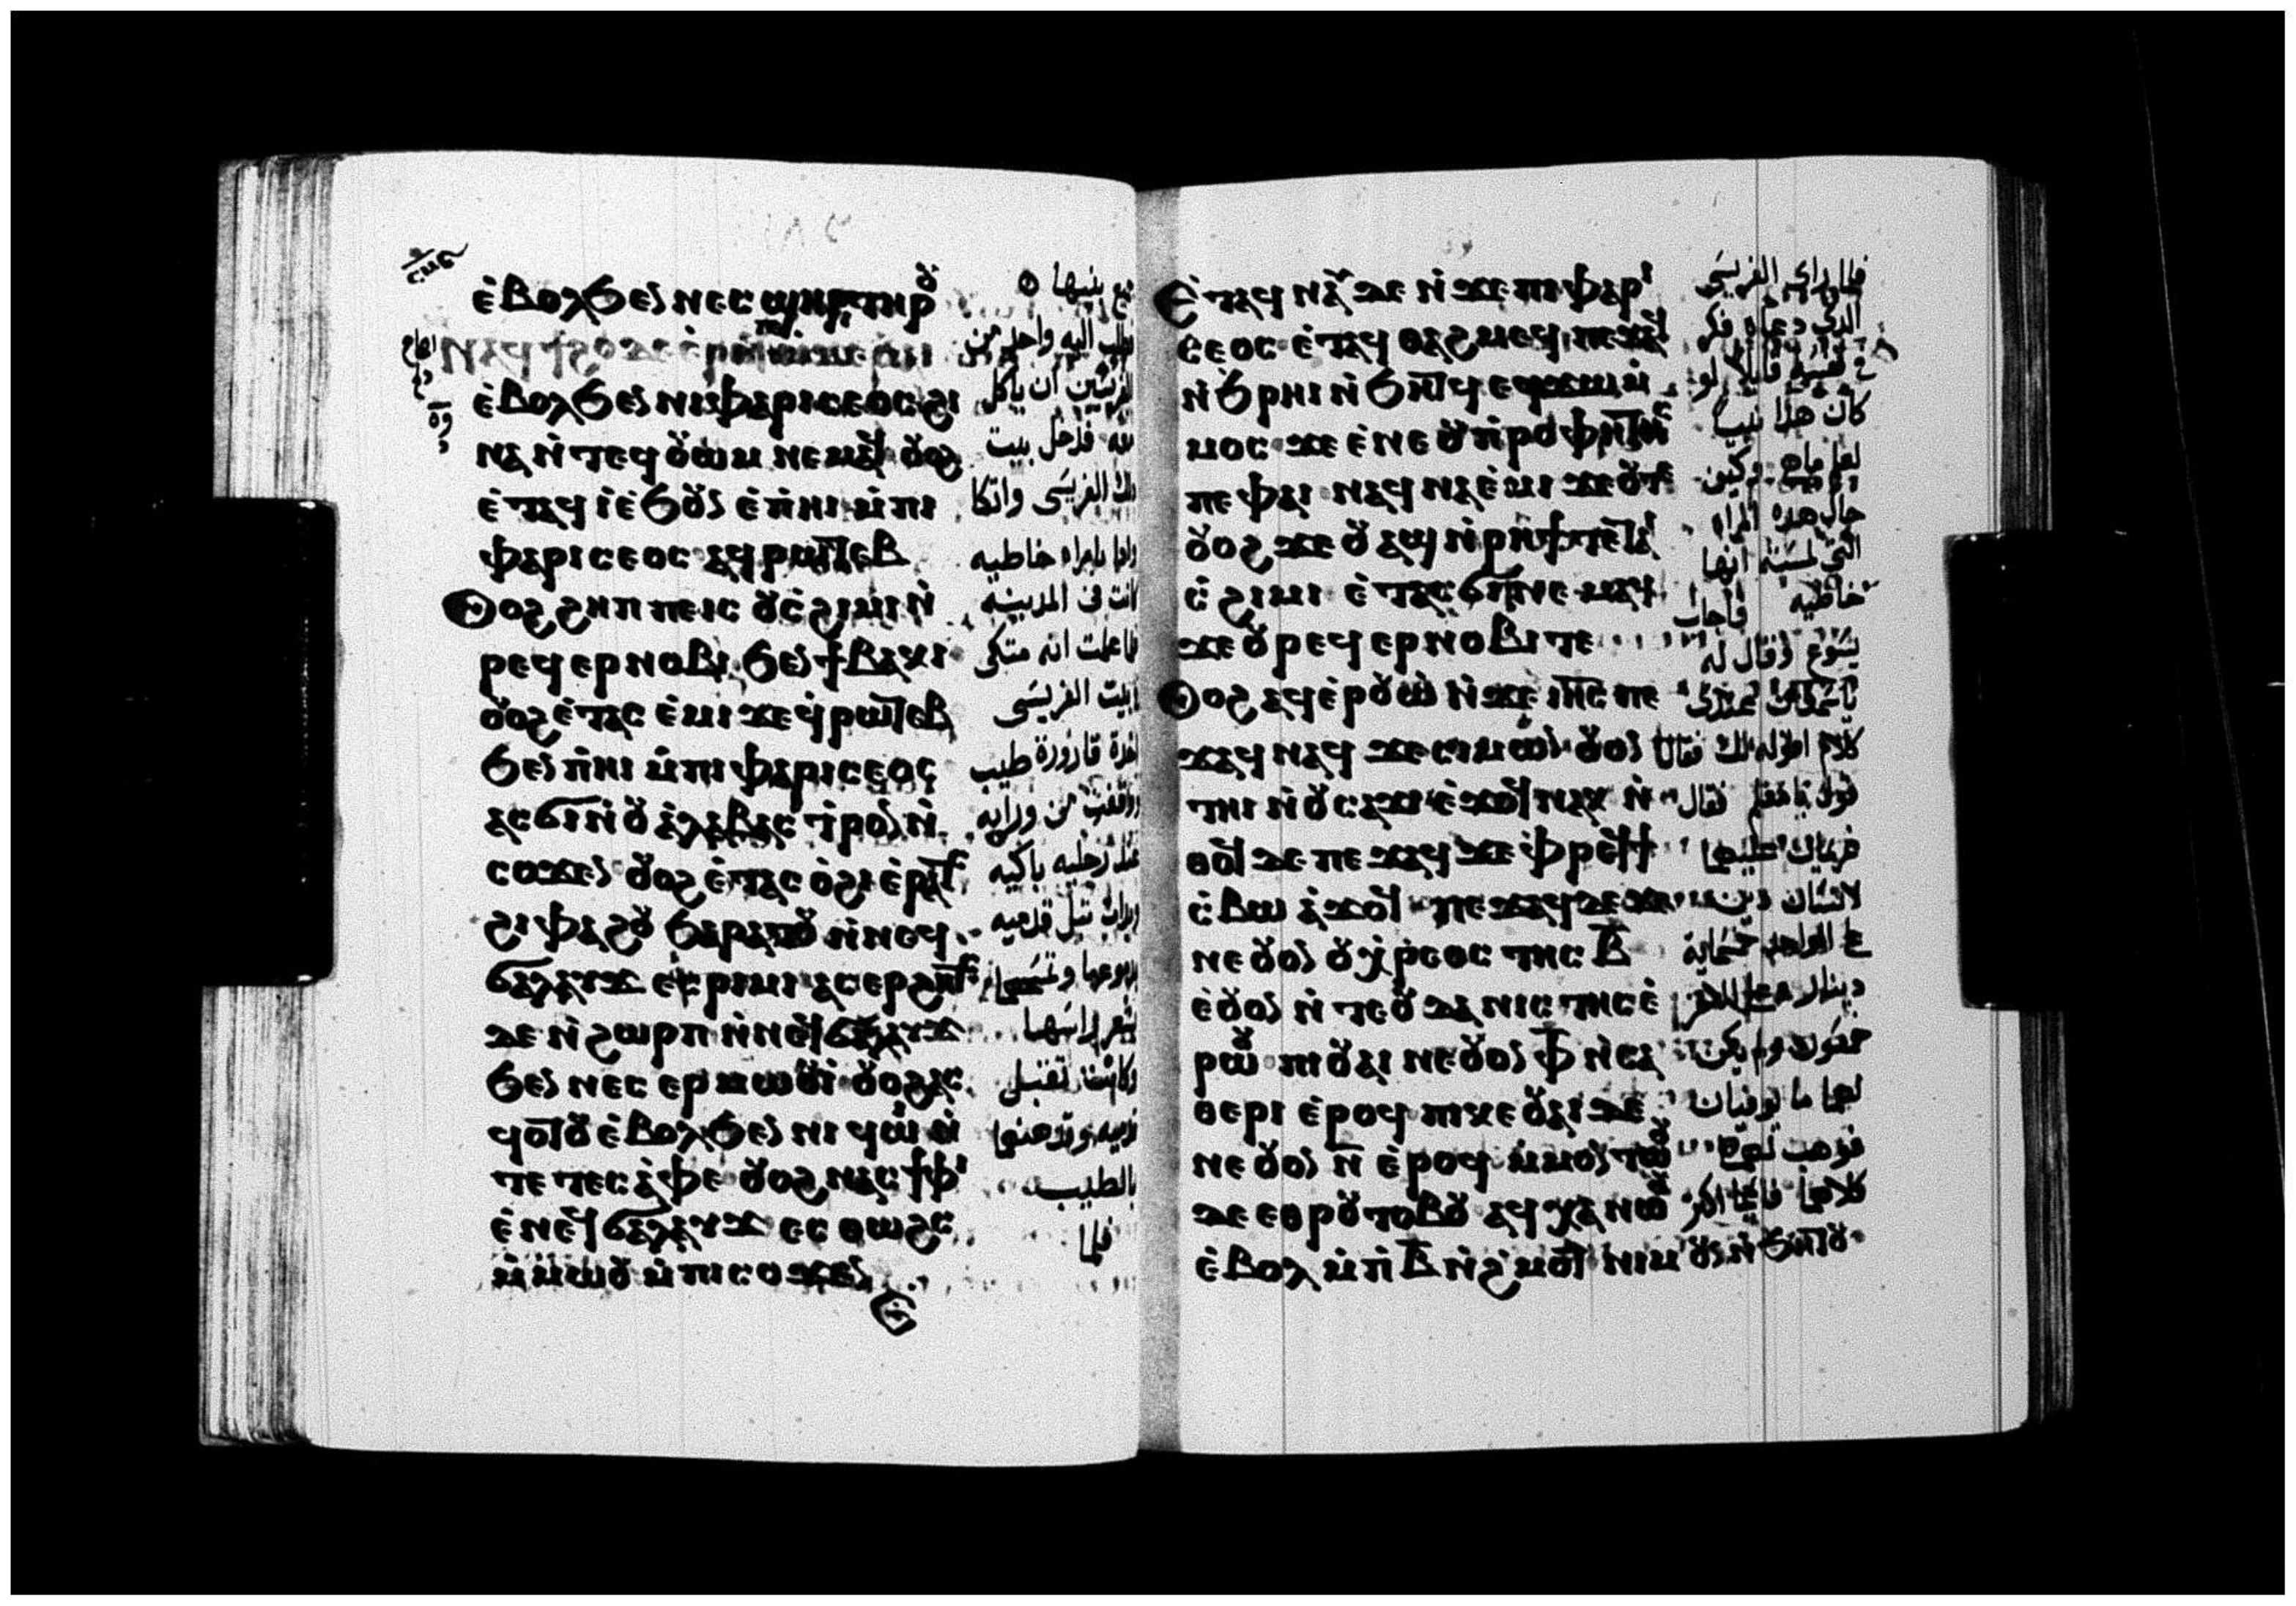 ⲉ̀ⲃⲟⲗϧⲉⲛ ⲛⲉⲥϣⲏⲣⲓ ⲧⲏⲣⲟⲩ
ⲉ̀ⲃⲟⲗϧⲉⲛ ⲛⲓⲫⲁⲣⲓⲥⲉⲟⲥ ϩⲓ
ⲛⲁ ⲛ̀ⲧⲉϥⲟⲩⲱⲙ ⲛⲉⲙⲁϥ ⲟⲩⲟϩ
ⲉ̀ⲧⲁϥ ⲓ̀ⲉ̀ϧⲟⲩⲛ ⲉ̀ⲡ̀ⲏⲓ ⲙ̀ⲡⲓ
ⲫⲁⲣⲓⲥⲉⲟⲥ ⲁϥⲣⲱⲧⲉⲃ
ⲟⲩⲟϩ ϩⲏⲡⲡⲉ ⲓⲥ ⲟⲩⲥ̀ϩⲓⲙⲓ ⲛ̀
ⲣⲉϥⲉⲣⲛⲟⲃⲓ ϧⲉⲛ ϯⲃⲁⲕⲓ
ⲟⲩⲟϩ ⲉ̀ⲧⲁⲥ ⲉ̀ⲙⲓ ϫⲉ ϥ̀ⲣⲱⲧⲉⲃ
ϧⲉⲛ ⲡ̀ⲏⲓ ⲙ̀ⲡⲓⲫⲁⲣⲓⲥⲉⲟⲥ
ⲁⲥϭⲓ ⲛ̀ⲟⲩⲁ̀ⲗⲁⲃⲁⲥⲧⲣⲟⲛ ⲛ̀
ⲥⲟϫⲉⲛ ⲟⲩⲟϩ ⲉ̀ⲧⲁⲥ ⲟ̀ϩⲓ ⲉ̀ⲣⲁⲧⲥ
ϩⲓ ⲫⲁϩⲟⲩ ϧⲁⲣⲁⲧⲟⲩ ⲛ̀ⲛⲉϥ
ϭⲁⲗⲁⲩϫ ⲉⲥⲣⲓⲙⲓ ⲁⲥⲉⲣϩⲏⲧⲥ
ⲇⲉ ⲛ̀ϩⲱⲣⲡ ⲛ̀ⲛⲉϥϭⲁⲗⲁⲩϫ
ϧⲉⲛ ⲛⲉⲥⲉⲣⲙⲱⲟⲩⲓ̀ ⲟⲩⲟϩ ⲁⲥ
ϥⲟⲧⲟⲩ ⲉ̀ⲃⲟⲗϧⲉⲛ ⲛⲓϥⲱⲓ ⲛ̀
ⲧⲉ ⲧⲉⲥⲁ̀ⲫⲉ ⲟⲩⲟϩ ⲛⲁⲥϯⲫⲓ
ⲉ̀ⲛⲉϥϭⲁⲗⲁⲩϫ ⲉⲥⲑⲱϩⲥ
ⲙ̀ⲙⲱⲟⲩ ⲙ̀ⲡⲓⲥⲟϫⲉⲛ
ⲉ
بنيها
اليه واحد من
الفريسين ان ياكل
فدخل بيت
ذلك الفريسى واتكا
واذا بامراه خاطيه
كانت فى المدينه
علمت انه متكى
بيت الفريسى
قارورة طيب
ووقفت من ورايه
عند رجليه باكيه
وبدات تبل قدميه
بدموعها وتمسحهما
بشعر راسها
وكانت تقبل
قدميه وتدهنهما
بالطيب
فلما
ⲉ̀ⲧⲁϥⲛⲁⲩ ⲇⲉ ⲛ̀ϫⲉ ⲡⲓⲫⲁⲣⲓ
ⲥⲉⲟⲥ ⲉ̀ⲧⲁϥⲑⲁϩⲙⲉϥ ⲡⲉϫⲁϥ
ⲛ̀ϧⲣⲏⲓ ⲛ̀ϧⲏⲧϥ ⲉϥϫⲱ ⲙ̀
ⲙⲟⲥ ϫⲉ ⲉ̀ⲛⲉ ⲟⲩⲡ̀ⲣⲟⲫⲏⲧⲏⲥ
ⲡⲉ ⲫⲁⲓ ⲛⲁϥⲛⲁⲉ̀ⲙⲓ ϫⲉ ⲟⲩ ⲧⲉ
ⲟⲩⲟϩ ϫⲉ ⲟⲩ ⲁϣ ⲛ̀ⲣⲏϯ ⲧⲉ ⲧⲁⲓ
ⲥ̀ϩⲓⲙⲓ ⲉ̀ⲧⲁⲥϭⲓⲛⲉⲙⲁϥ
ϫⲉ ⲟⲩⲣⲉϥⲉⲣⲛⲟⲃⲓ ⲧⲉ
ⲟⲩⲟϩ ⲁϥⲉ̀ⲣⲟⲩⲱ̀ ⲛ̀ϫⲉ ⲓⲏⲥ ⲡⲉ
ϫⲁϥ ⲛⲁϥ ϫⲉ ⲥⲓⲙⲱⲛ ⲟⲩⲟⲛ
ⲧⲏⲓ ⲛ̀ⲟⲩⲥⲁϫⲓ ⲉ̀ϫⲟϥ ⲛⲁⲕ ⲛ̀
ⲑⲟϥ ⲇⲉ ⲡⲉϫⲁϥ ϫⲉ ⲫ̀ⲣⲉϥϯ
ⲥ̀ⲃⲱ ⲁ̀ϫⲟϥ ⲡⲉϫⲁϥ ⲇⲉ ϫⲉ
ⲛⲉ ⲟⲩⲟⲛ ⲟⲩⲭ̀ⲣⲉⲟⲥⲧⲏⲥ ⲃ̅
ⲉ̀ⲟⲩⲟⲛ ⲛ̀ⲧⲉ ⲟⲩⲇⲁⲛⲓⲥⲧⲏⲥ ⲉ̀
ⲣⲱⲟⲩ ⲡⲓⲟⲩⲁⲓ ⲛⲉ ⲟⲩⲟⲛ ⲫ̅ ⲛ̀ⲥⲁ
ⲑⲉⲣⲓ ⲉ̀ⲣⲟϥ ⲡⲓⲕⲉⲟⲩⲁⲓ ⲇⲉ
ⲛⲉ ⲟⲩⲟⲛ ⲛ̅ ⲉ̀ⲣⲟϥ ⲙ̀ⲙⲟⲛⲧⲱⲟⲩ
ⲇⲉ ⲉⲑⲣⲟⲩⲧⲟⲃⲟⲩ ⲁϥⲭⲁ ⲛⲱⲟⲩ
ⲉ̀ⲃⲟⲗ ⲙ̀ⲡ̀ⲃ̅ ⲛ̀ϩ̀ⲙⲟⲧ ⲛⲓⲙ ⲟⲩⲛ ⲛ̀ϧⲏⲧⲟⲩ
فلما راى الفريسى
الذى دعاه فكر
فى نفسه قايلا لو
كان هذا نبيا
لعلم ما هى وكيف
حال هذه المراه
التى لمسته انها
خاطيه فاجاب
يسوع وقال له
يا سمعان عندى
كلام اقوله لك فقال
قول يا معلم فقال
غريمان عليهما
لانسان دين
على الواحد خمسماية
دينار وعلى الاخر
خمسون ولم يكن
لهما ما يوفيان
فوهب لهما
كلاهما فايما اكثر